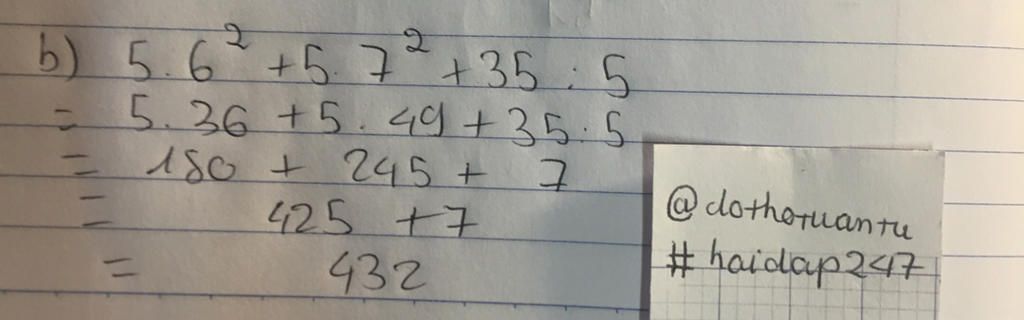 b) 5.6² + 5.7² + 35 : 5
= 5.36 + 5.49 + 35:5
= 180 + 245 + 7
= 425 + 7
= 432
@dothotuantu
#haidap247